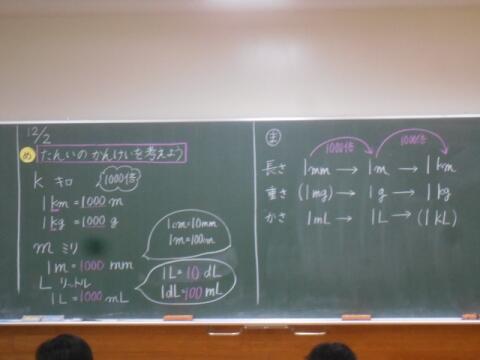 12/2
め たんいのかんけいを考えよう
k キロ 1000倍
1km=1000m
1kg=1000g
m ミリ
1m=1000mm
L リットル
1L=1000mL
1cm=10mm
1m=100cm
1L=10dL
1dL=100mL
ま
1000倍 1000倍
長さ 1mm → 1m → 1km
重さ (1mg) → 1g → 1kg
かさ 1mL → 1L → (1kL)